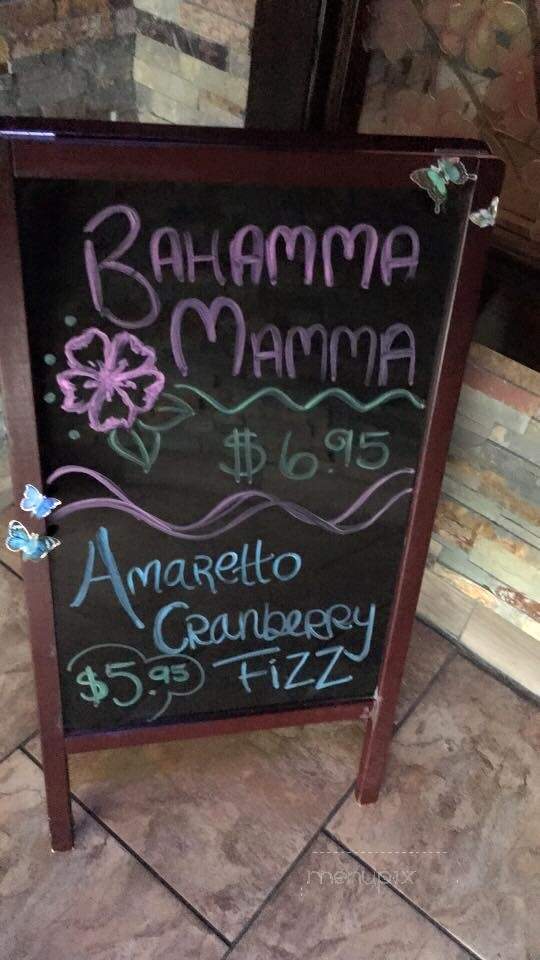 BAHAMMA
MAMMA
$6.95
AMARETTO
CRANBERRY
$5.95 FIZZ
menupix